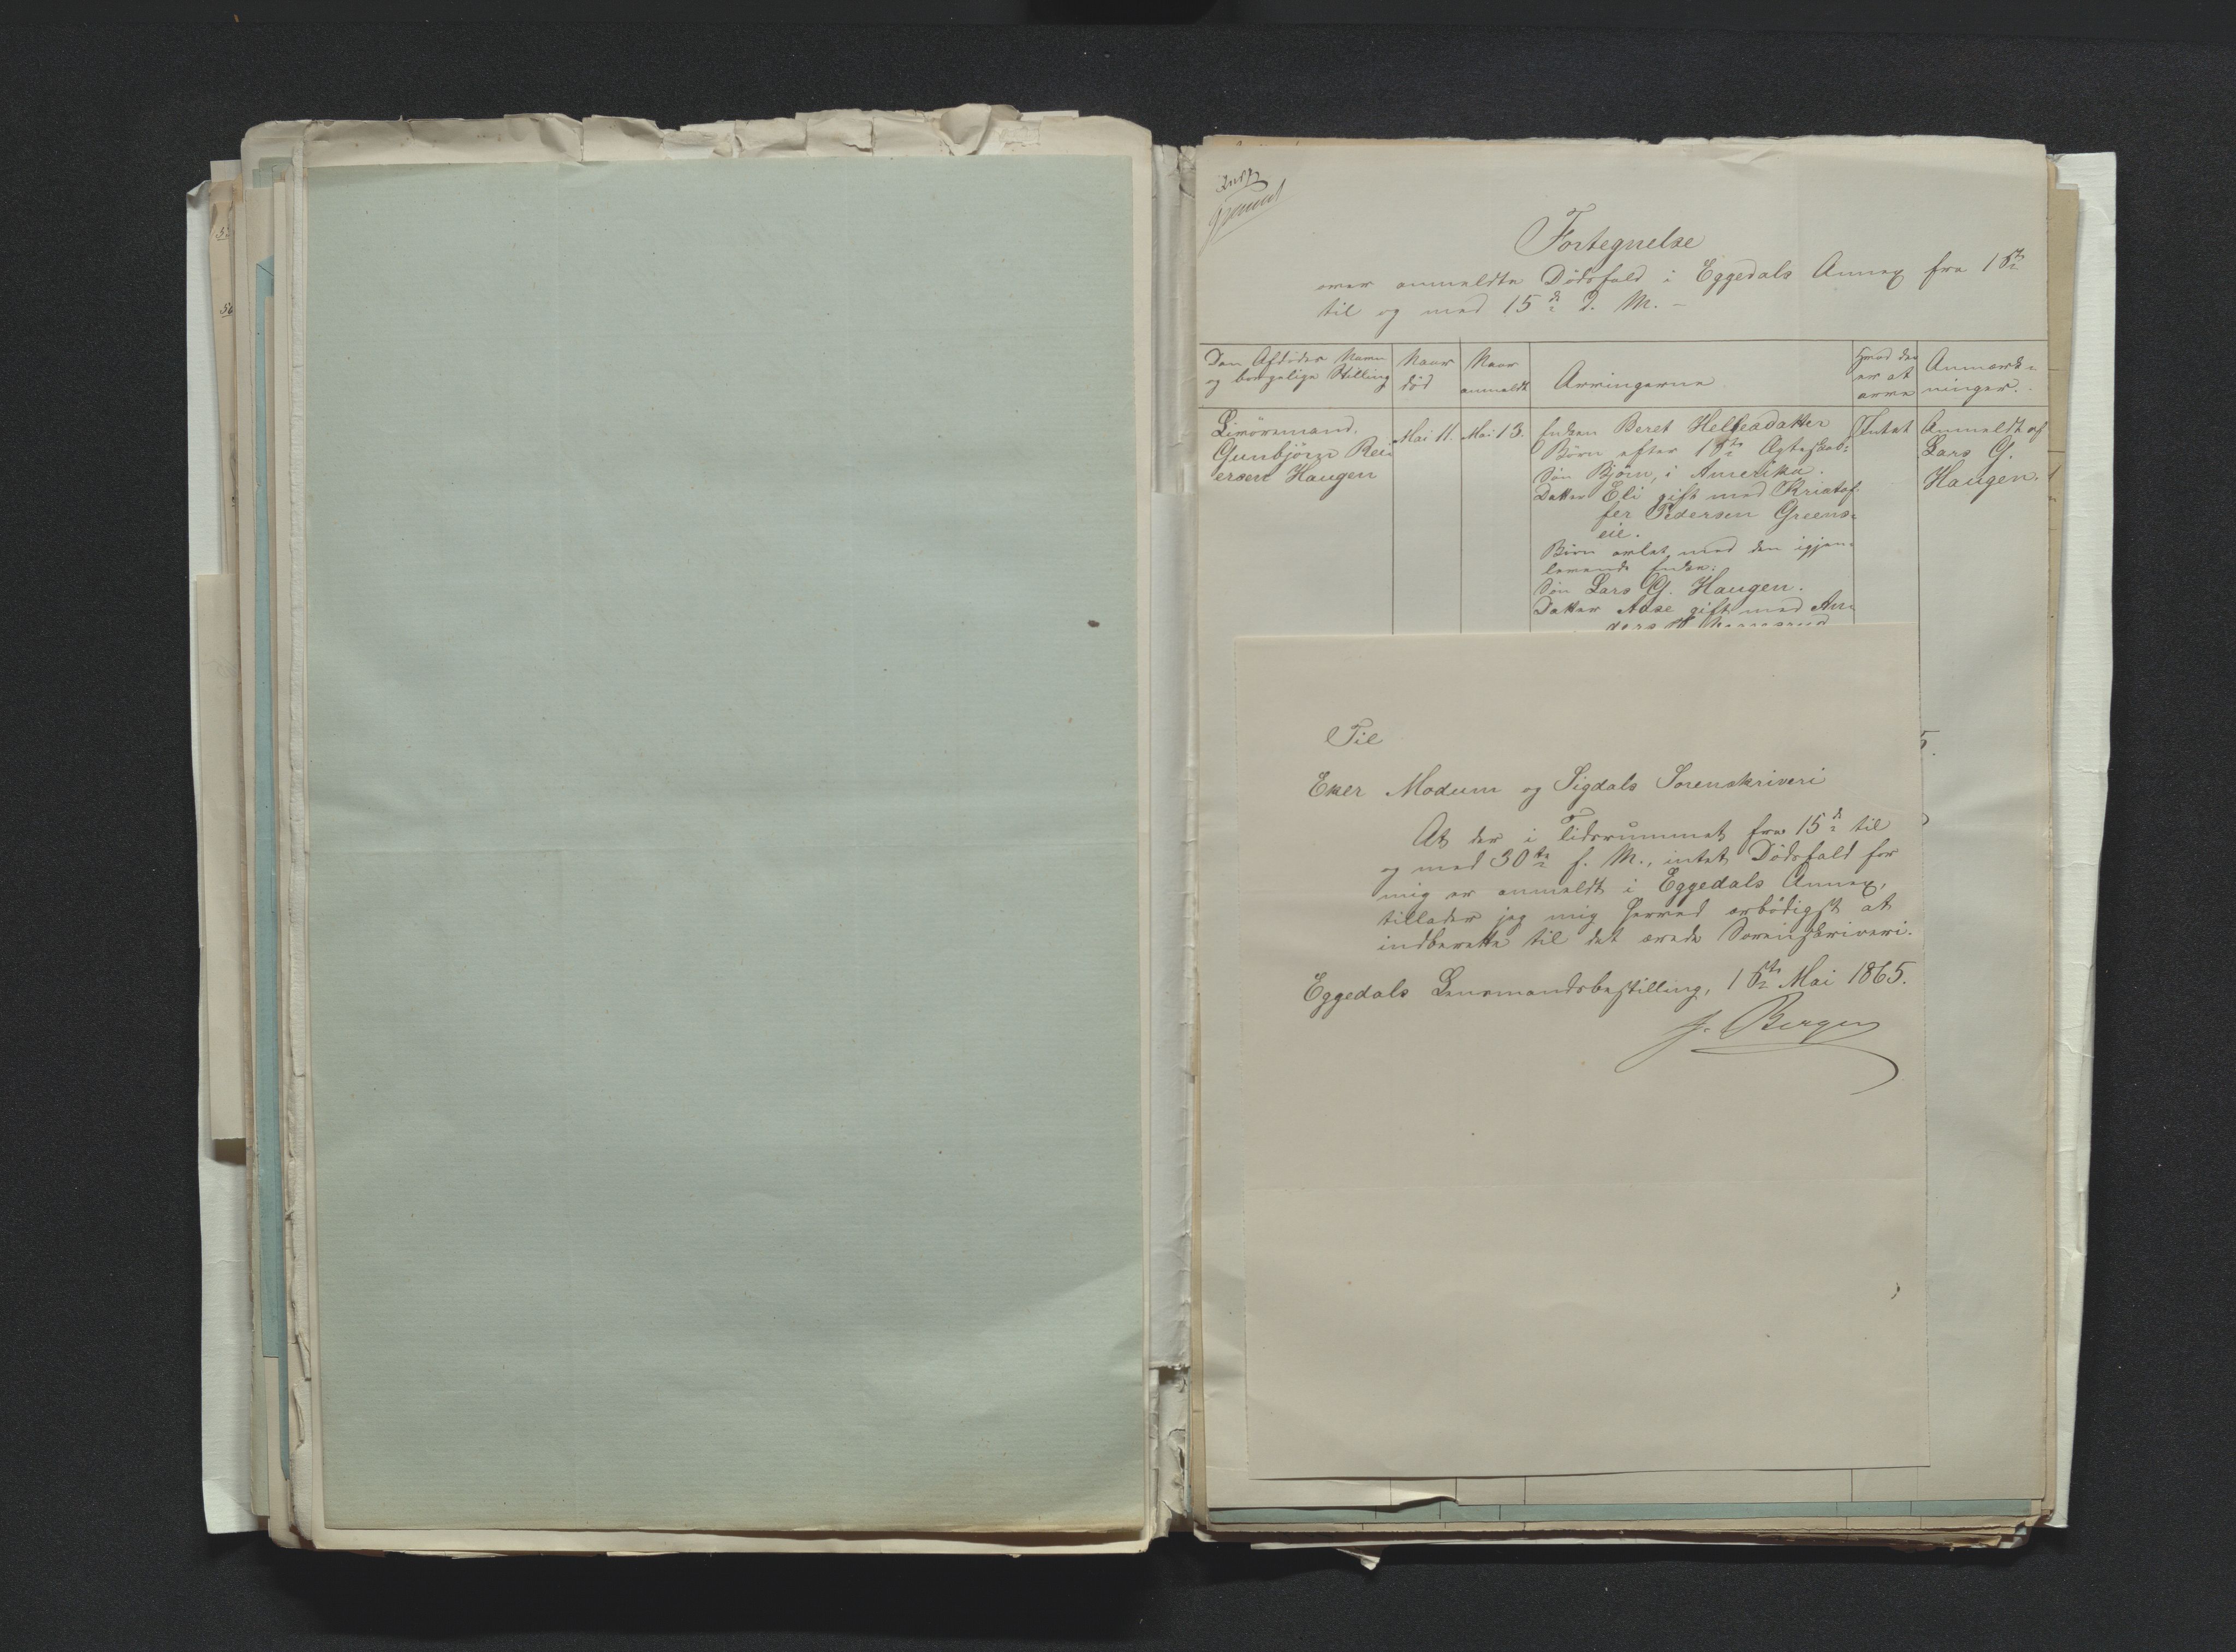 Fortegnelse
over anmeldte Dödsfald i Eggedals Annex fra 1ste
til og med 15de d. M. –
Den Afdödes Navn
og borgelige Stilling
Naar
död
Naar
anmeldt
Arvingerne
Hvad der
er at
arve
Anmærk-
ninger.
Livöremand.
Gunbjörn Rei-
ersen Haugen
Mai 11.
Mai 13.
Enken Beret Helleadatter
Börn efter 1ste Ægteskab:
Sön Björn, i Amerika.
Datter Eli gift med Kristof-
fer Pedersen Greens-
eie.
Börn avlet med den igjen-
levende Enke:
Sön Lars G. Haugen.
Datter Aase gift med An-
ders
Intet
Anmeldt af
Lars G.
Haugen.
Til
Eker Modum og Sigdals Sorenskriveri
At der i Tidsrummet fra 15de til
og med 30te f. M., intet Dödsfald for
mig er anmeldt i Eggedals Annex,
tillader jeg mig herved ærbödigst at
indberette til det ærede Sorenskriveri.
Eggedals Lensmandsbestilling, 1ste Mai 1865.
J. Bergen